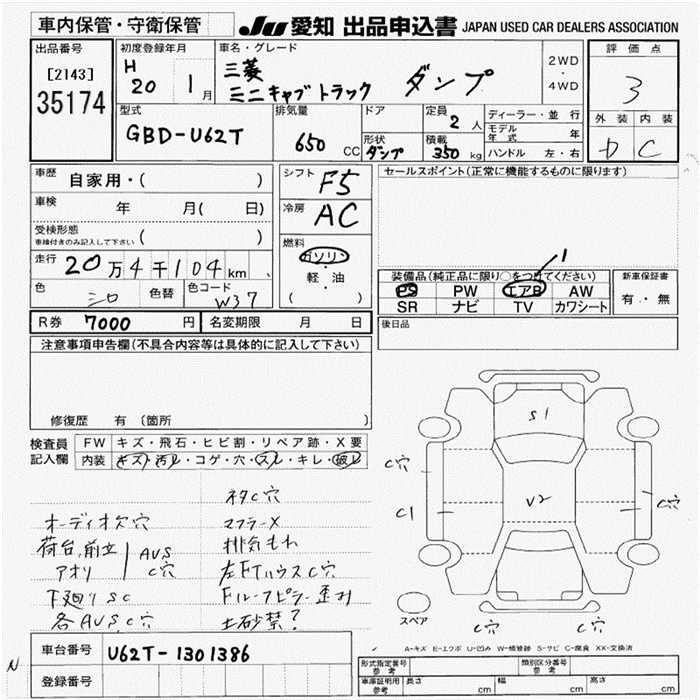 車内保管・守衛保管
JU 愛知 出品申込書 JAPAN USED CAR DEALERS ASSOCIATION
出品番号
[2143]
35174
初度登録年月
H 20 1月
車名・グレード
三菱
ミニキャブトラック ダンプ
2WD
・
4WD
評価点
3
外装 内装
D C
型式
GBD-U62T
排気量
650 CC
ドア
形状
ダンプ
定員
2人
積載
350 kg
ディーラー・並行
モデル年式 年
ハンドル 左・右
車歴
自家用・( )
車検
年 月( 日)
受検形態
車検付きのみ記入して下さい ( )
走行
20万4千104km
色
シロ
色替
色コード
W37
シフト
F5
冷房
AC
燃料
ガソリン
・
軽・油
( )
セールスポイント(正常に機能するものに限ります)
装備品(純正品に限り○をつけてください)
PS PW エアB AW
SR ナビ TV カワシート
新車保証書
有・無
後日品
R券 7000 円
名変期限 月 日
注意事項申告欄(不具合内容等は具体的に記入して下さい)
修復歴 有 (箇所
検査員
記入欄
FW キズ・飛石・ヒビ割・リペア跡・X要
内装 キズ・汚レ・コゲ・穴・スレ・キレ・破レ
オーディオ欠穴
荷台、前立
アオリ
AUS
C穴
下廻りSC
各AUSC穴
ネタC穴
マフラーX
排気もれ
左FTハウスC穴
Fルーフピラー歪み
土砂禁?
S1
V2
C穴
C1
C穴
C穴 C穴
スペア
A-キズ E-エクボ U-凹み W-補修跡 S-サビ C-腐食 XX-交換済
N
車台番号
U62T-1301386
登録番号
形式指定番号
参考
類別区分番号
参考
車庫証明用
参考
長さ cm
幅 cm
高さ cm